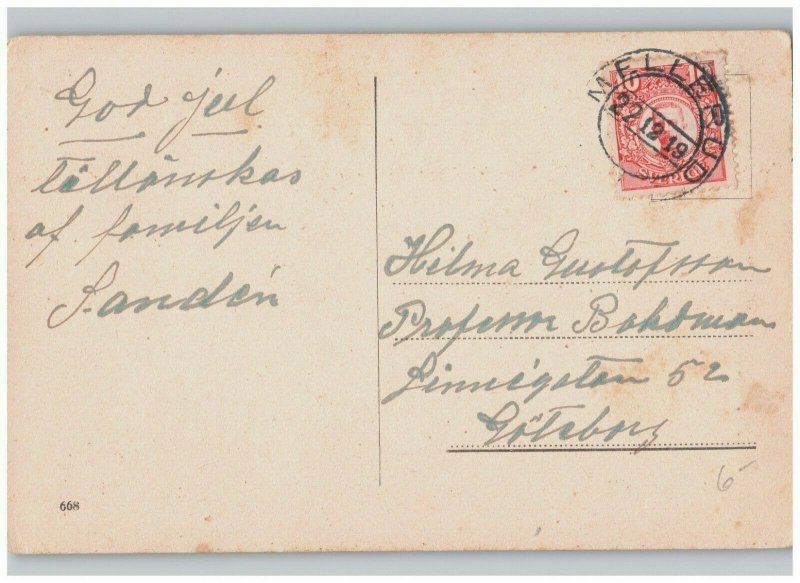 God jul
tillönskas
af familjen
Sandén
MELLERUD
22 12 19
Hilma Gustafsson
Professor
Linnégatan 52
Göteborg
6
668